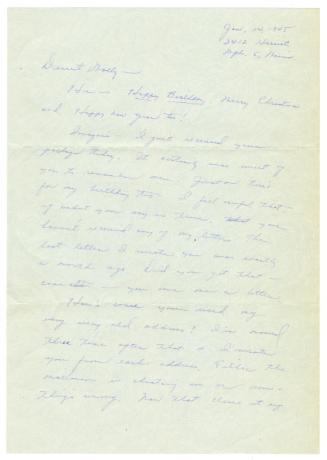 Jan. 14, 1945
2412 Harriet
Mpls. 5, Minn
Dearest Molly—
Hi — Happy Birthday, Merry Christmas
and Happy New Year to!
Imagine I just received your
package today. It certainly was sweet of
you to remember me. Just on time
for my birthday too. I feel awful that
if what you say is true, that you
haven't received any of my letters. The
last letter I wrote you was exactly
a month ago. Did you get that
you owe me a letter.
How come you used my
very very old address? I've moved
three times after that & I wrote
you from each address. Either the
mailman is cheating us or some-
thing's wrong. Now that